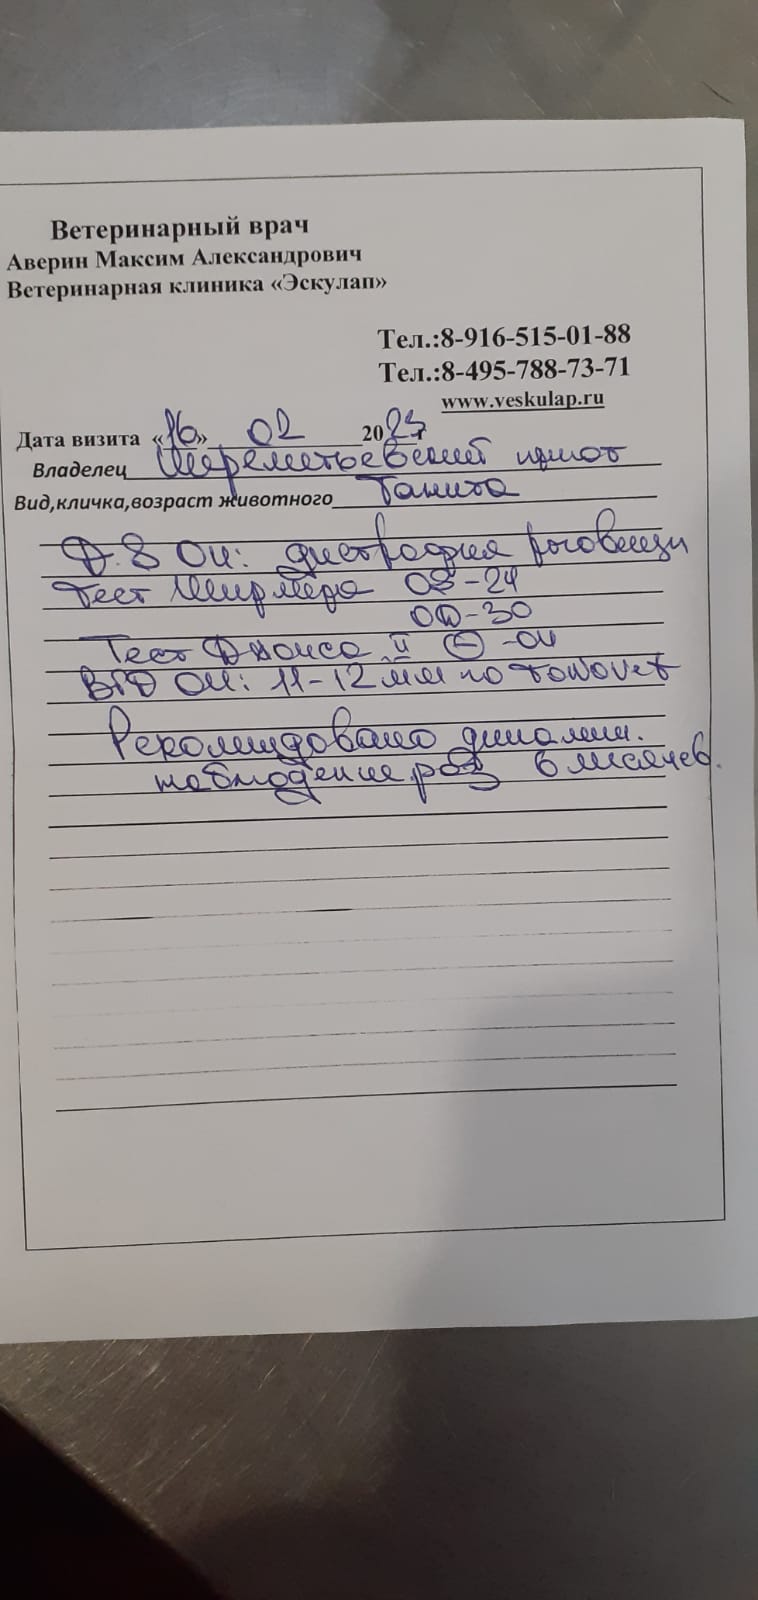 Ветеринарный врач
Аверин Максим Александрович
Ветеринарная клиника «Эскулап»
Тел.:8-916-515-01-88
Тел.:8-495-788-73-71
www.veskulap.ru
Дата визита «16» 02 2023
Владелец Шереметьевский приют
Вид,кличка,возраст животного Танита
D.S OU: дистрофия роговицы
Тест Ширмера OS-24
OD-30
Тест Джонса ⊖ -OU
ВГД OU: 11-12 мм по Tonovet
Рекомендовано динамич.
наблюдение раз 6 месяцев.